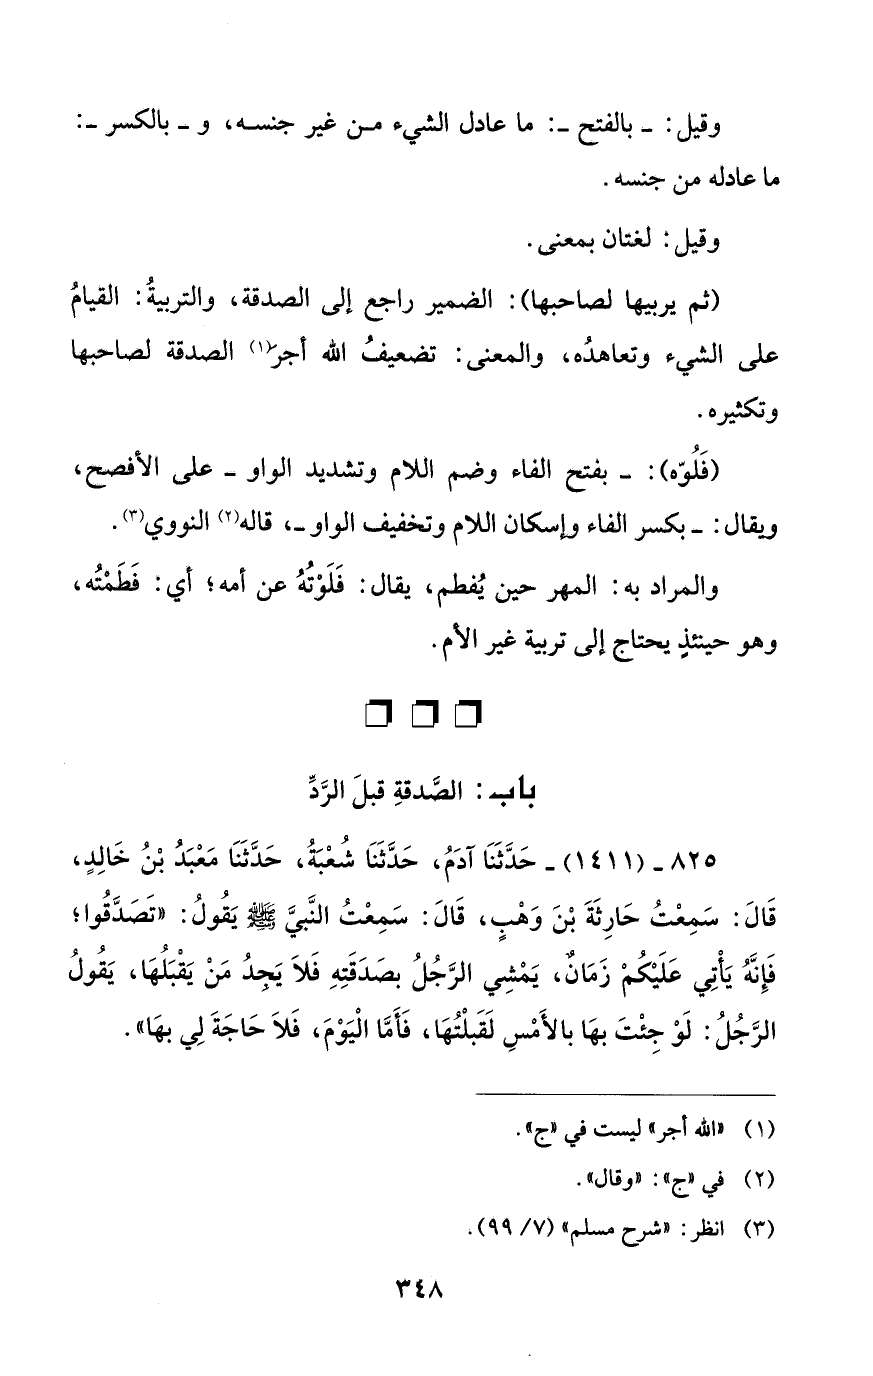 وقيل: ـ بالفتح ـ: ما عادل الشيء من غير جنسه، و ـ بالكسر ـ:
ما عادله من جنسه.
وقيل: لغتان بمعنى.
(ثم يربيها لصاحبها): الضمير راجع إلى الصدقة، والتربيةُ: القيامُ
على الشيء وتعاهدُه، والمعنى: تضعيفُ الله أجر(١) الصدقة لصاحبها
وتكثيره.
(فَلُوّه): ـ بفتح الفاء وضم اللام وتشديد الواو ـ على الأفصح،
ويقال: ـ بكسر الفاء وإسكان اللام وتخفيف الواو ـ، قاله(٢) النووي(٣).
والمراد به: المهر حين يُفطم، يقال: فَلَوْتُهُ عن أمه؛ أي: فَطَمْتُه،
وهو حينئذٍ يحتاج إلى تربية غير الأم.
باب: الصَّدقةِ قبلَ الرَّدِّ
٨٢٥ ـ (١٤١١) ـ حَدَّثَنَا آدَمُ، حَدَّثَنَا شُعْبَةُ، حَدَّثَنَا مَعْبَدُ بْنُ خَالِدٍ،
قَالَ: سَمِعْتُ حَارِثَةَ بْنَ وَهْبٍ، قَالَ: سَمِعْتُ النَّبِيَّ ﷺ يَقُولُ: «تَصَدَّقُوا؛
فَإِنَّهُ يَأْتِي عَلَيْكُمْ زَمَانٌ، يَمْشِي الرَّجُلُ بِصَدَقَتِهِ فَلاَ يَجِدُ مَنْ يَقْبَلُهَا، يَقُولُ
الرَّجُلُ: لَوْ جِئْتَ بِهَا بِالأَمْسِ لَقَبِلْتُهَا، فَأَمَّا الْيَوْمَ، فَلاَ حَاجَةَ لِي بِهَا».
(١) «الله أجر» ليست في «ج».
(٢) في «ج»: «وقال».
(٣) انظر: «شرح مسلم» (٧/ ٩٩).
٣٤٨